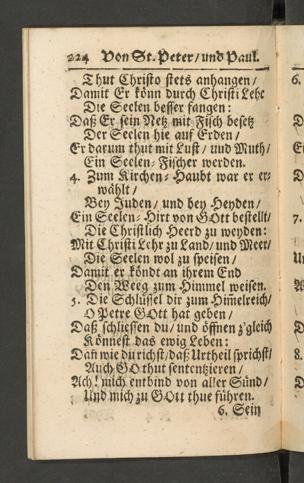 224 Von St. Peter/ und Paul.
Thut Christo stets anhangen/
Damit Er könn durch Christi Lehr
Die Seelen besser fangen:
Daß Er sein Netz mit Fisch besetz
Der Seelen hie auf Erden/
Er darum thut mit Lust/ und Muth/
Ein Seelen-Fischer werden.
4. Zum Kirchen-Haubt war er er-
wählt/
Bey Juden/ und bey Heyden/
Ein Seelen-Hirt von GOtt bestellt/
Die Christlich Heerd zu weyden:
Mit Christi Lehr zu Land/ und Meer/
Die Seelen wol zu speisen/
Damit er köndt an ihrem End
Den Weeg zum Himmel weisen.
5. Die Schlüssel dir zum Him̃elreich/
O Petre GOtt hat geben/
Daß schliessen du/ und öffnen z'gleich
Könnest das ewig Leben:
Dañ wie du richst/ daß Urtheil sprichst/
Auch GOtt thut sententzieren/
Ach! mich entbind von aller Sünd/
Und mich zu GOtt thue führen.
6. Sein
6.
D
E
D
7.
U
D
8.
D